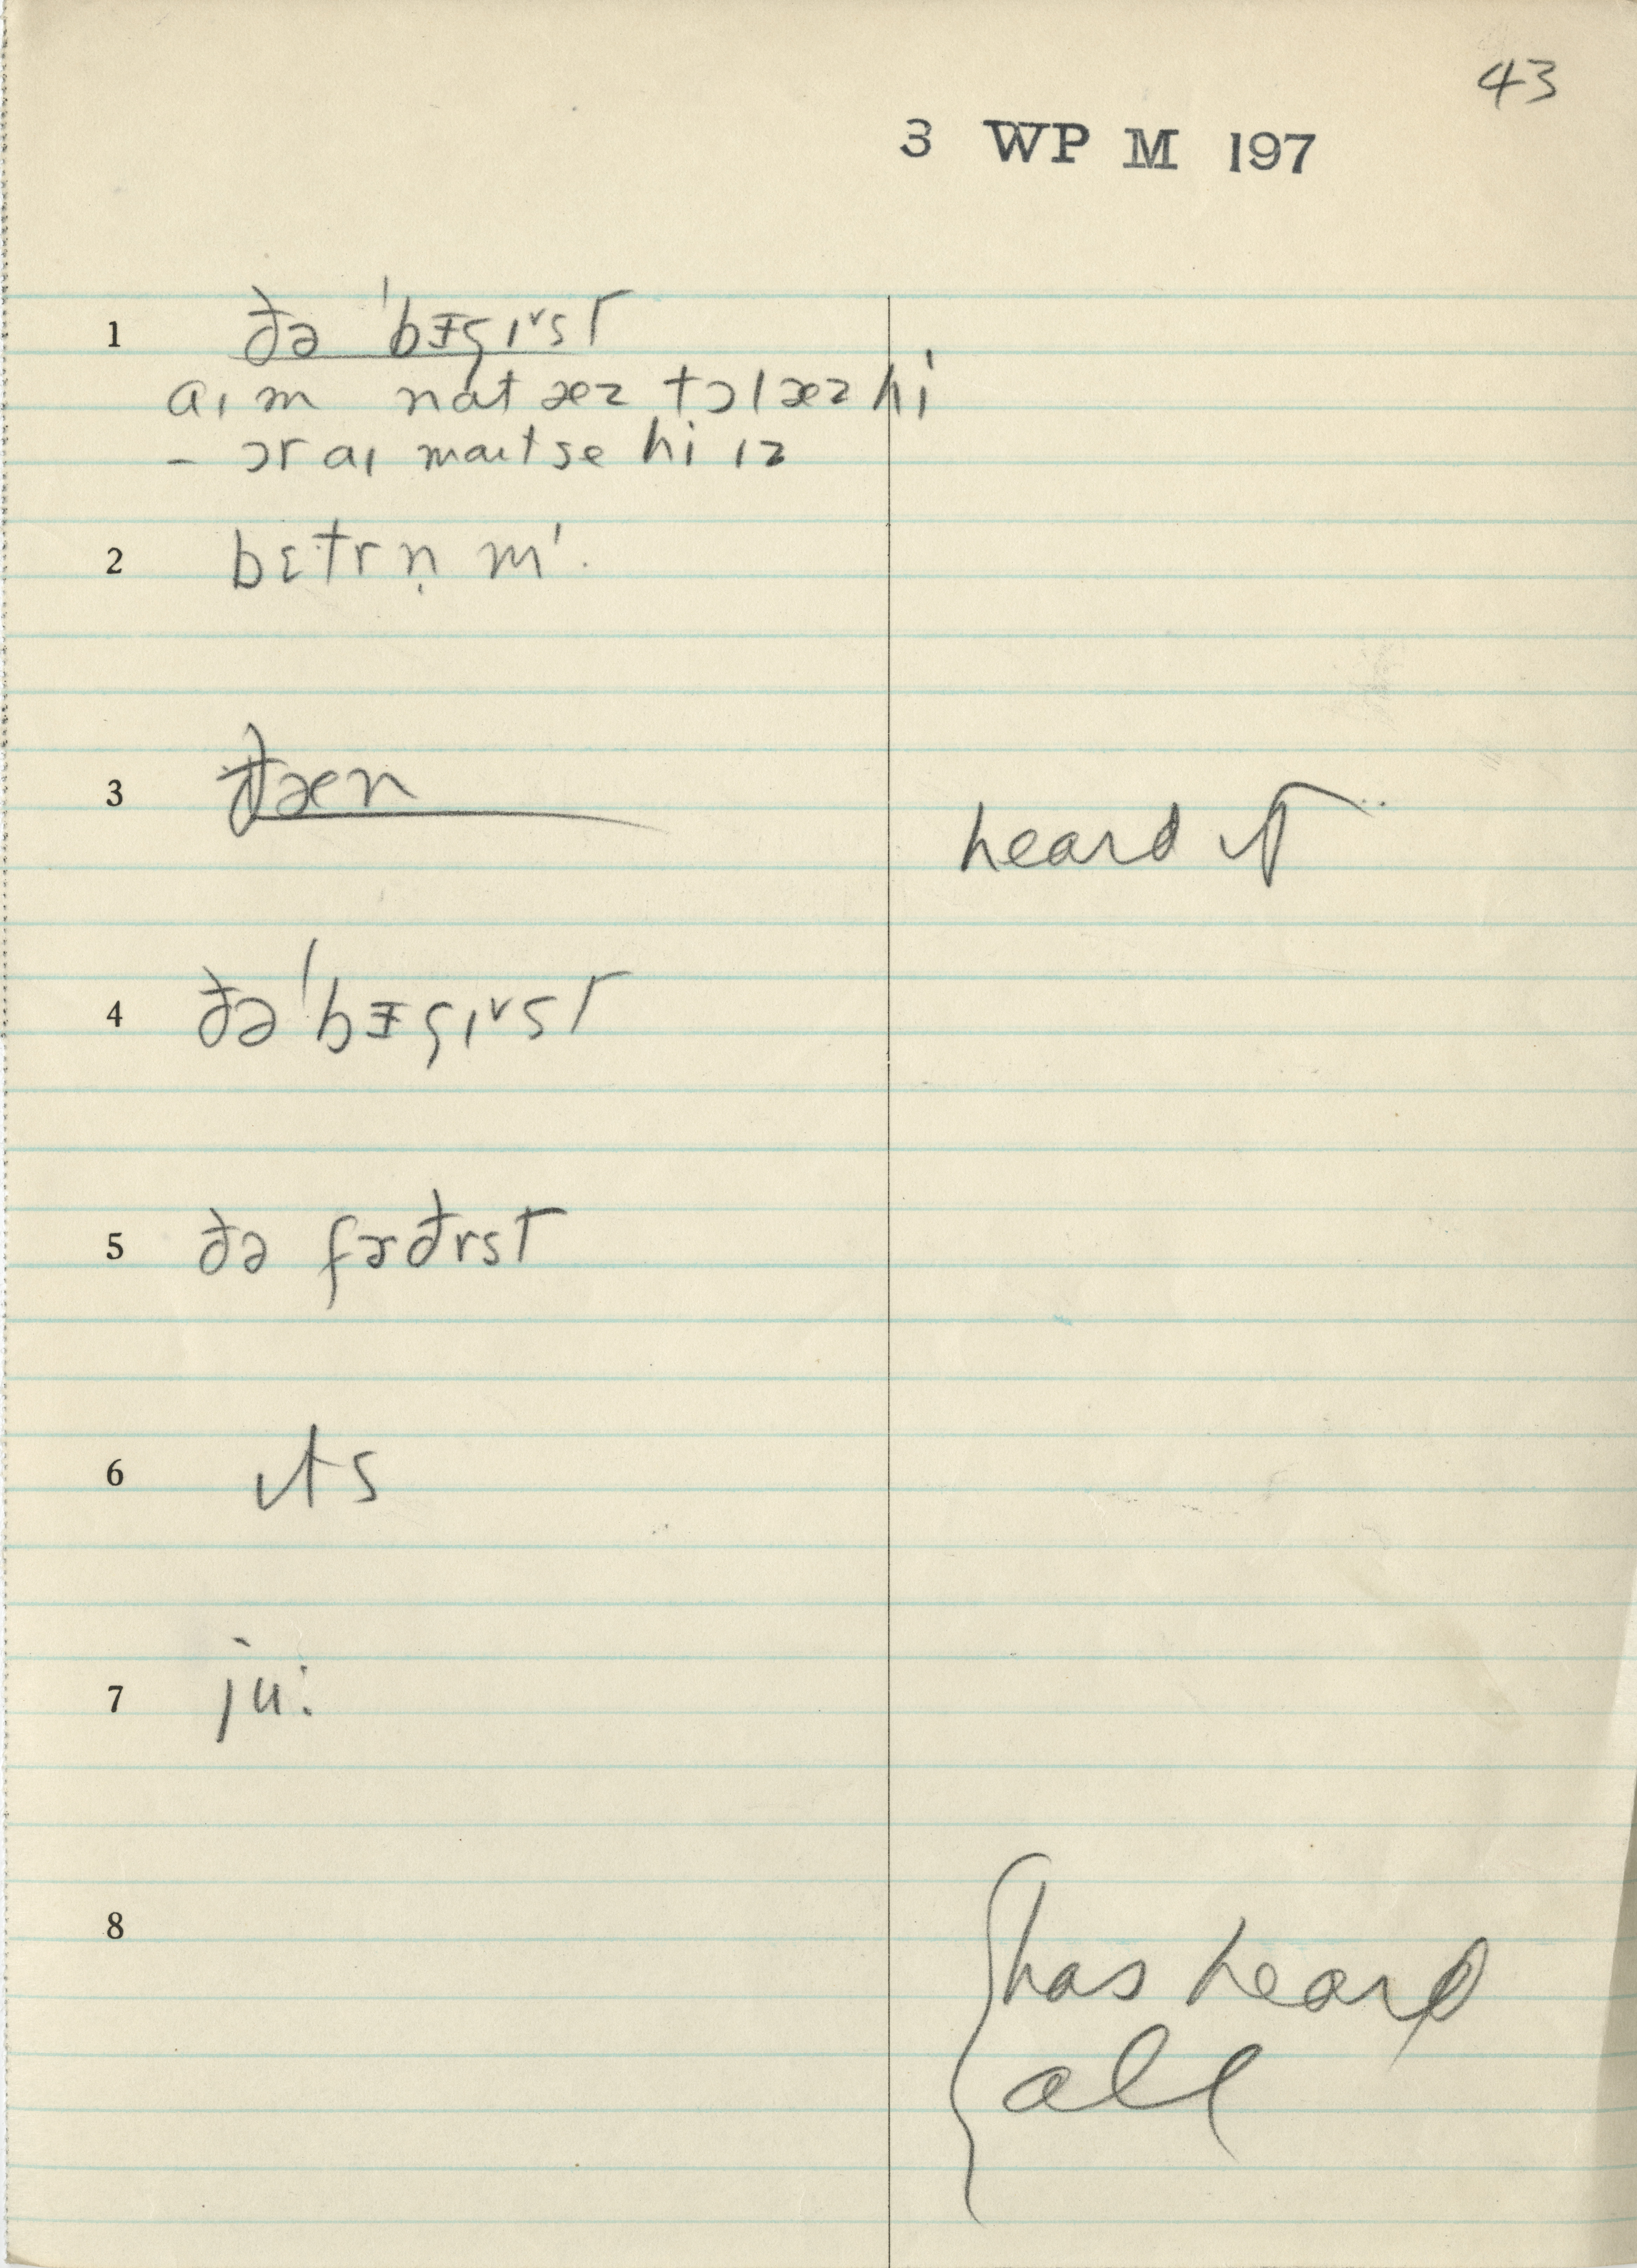 43
3 WP M 197
1 ðə ˈbɪgɪˇst
aɪm nat æz tɔl æz hi
– ɔr aɪ maɪt se hi ɪz
2 bɛtrṇ mˈ.
3 ðæn heard it
4 ðə ˈbɪgɪˇst
5 ðə fɚðrst
6 ɪts
7 ju:
8 has heard
all